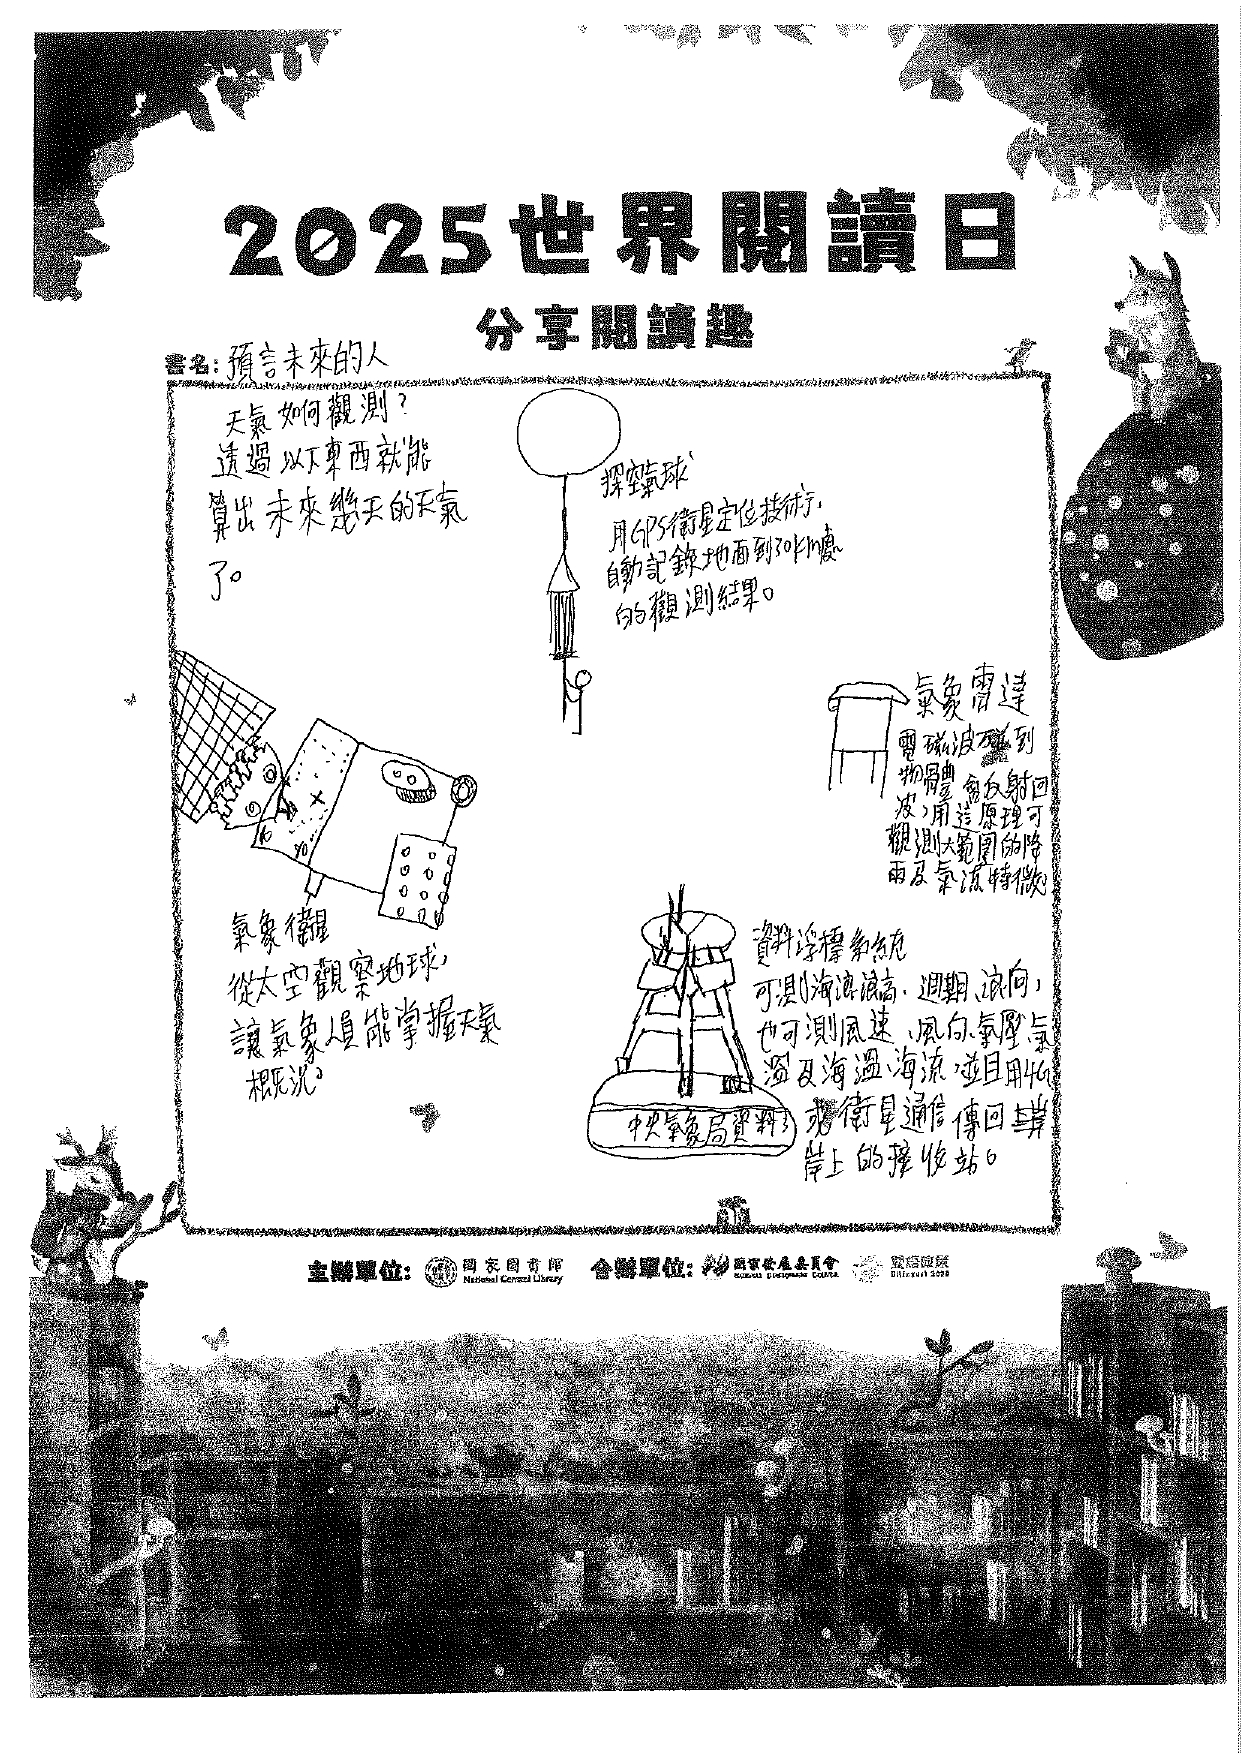 2025世界閱讀日
分享閱讀趣
書名:預言未來的人
天氣如何觀測?
透過以下東西就能
算出未來幾天的天氣
了。
探空氣球
用GPS衛星定位技術,
自動記錄地面到30km處
的觀測結果。
氣象雷達
電磁波碰到
物體會反射回
波,用這原理可
觀測大範圍的降
雨及氣流特徵
氣象衛星
從太空觀察地球,
讓氣象人員能掌握天氣
概況。
資料浮標系統
可測海浪浪高、週期、浪向,
也可測風速、風向、氣壓、氣
溫及海溫、海流,並且用4G
或衛星通信傳回
岸上的接收站。
中央氣象局資料
主辦單位: 國家圖書館 合辦單位: 國家發展委員會
National Central Library